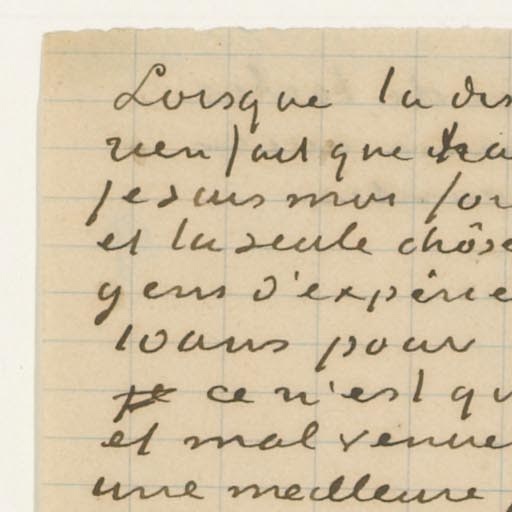 Lorsque tu dis
rien fait que tra
je suis moi for
et la seule chôse
gens d'expérie
10 ans pour
je ce n'est qu
et mal venue
une meilleure